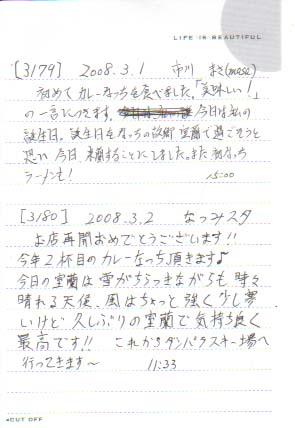 LIFE IS BEAUTIFUL
[3179] 2008.3.1 市川 まさ(masa)
初めてカレーなっちを食べました。「美味しい!」
の一言につきます。今日は私の
誕生日。誕生日をなっちの故郷 室蘭で過ごそうと
思い 今日、来蘭することにしました。また初なっち
ラーメンも! 15:00
[3180] 2008.3.2 なっつみスタ
お店再開おめでとうございます!!
今年2杯目のカレーなっち頂きます♪
今日の室蘭は雪がちらつきながらも 時々
晴れる天候、風はちょっと強く少し寒
いけど 久しぶりの室蘭で気持ち良く
最高です!! これからダンパラスキー場へ
行ってきます〜 11:33
CUT OFF